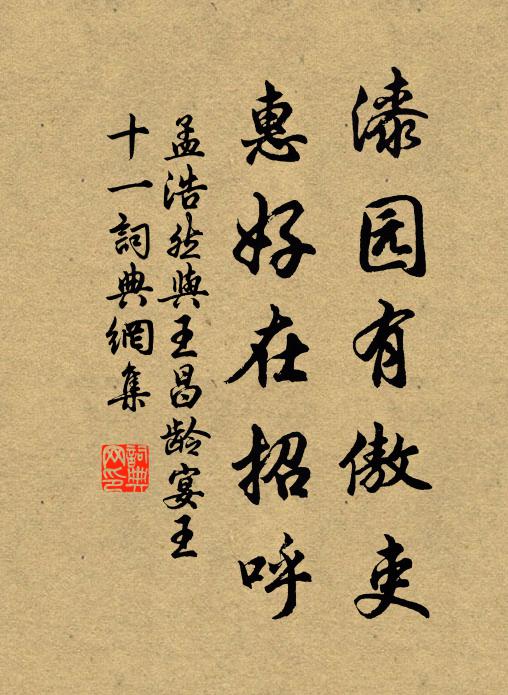 漆园有傲吏
惠好在招呼
孟浩然與王昌龄宴王
十一詞典網集
詞典
网印